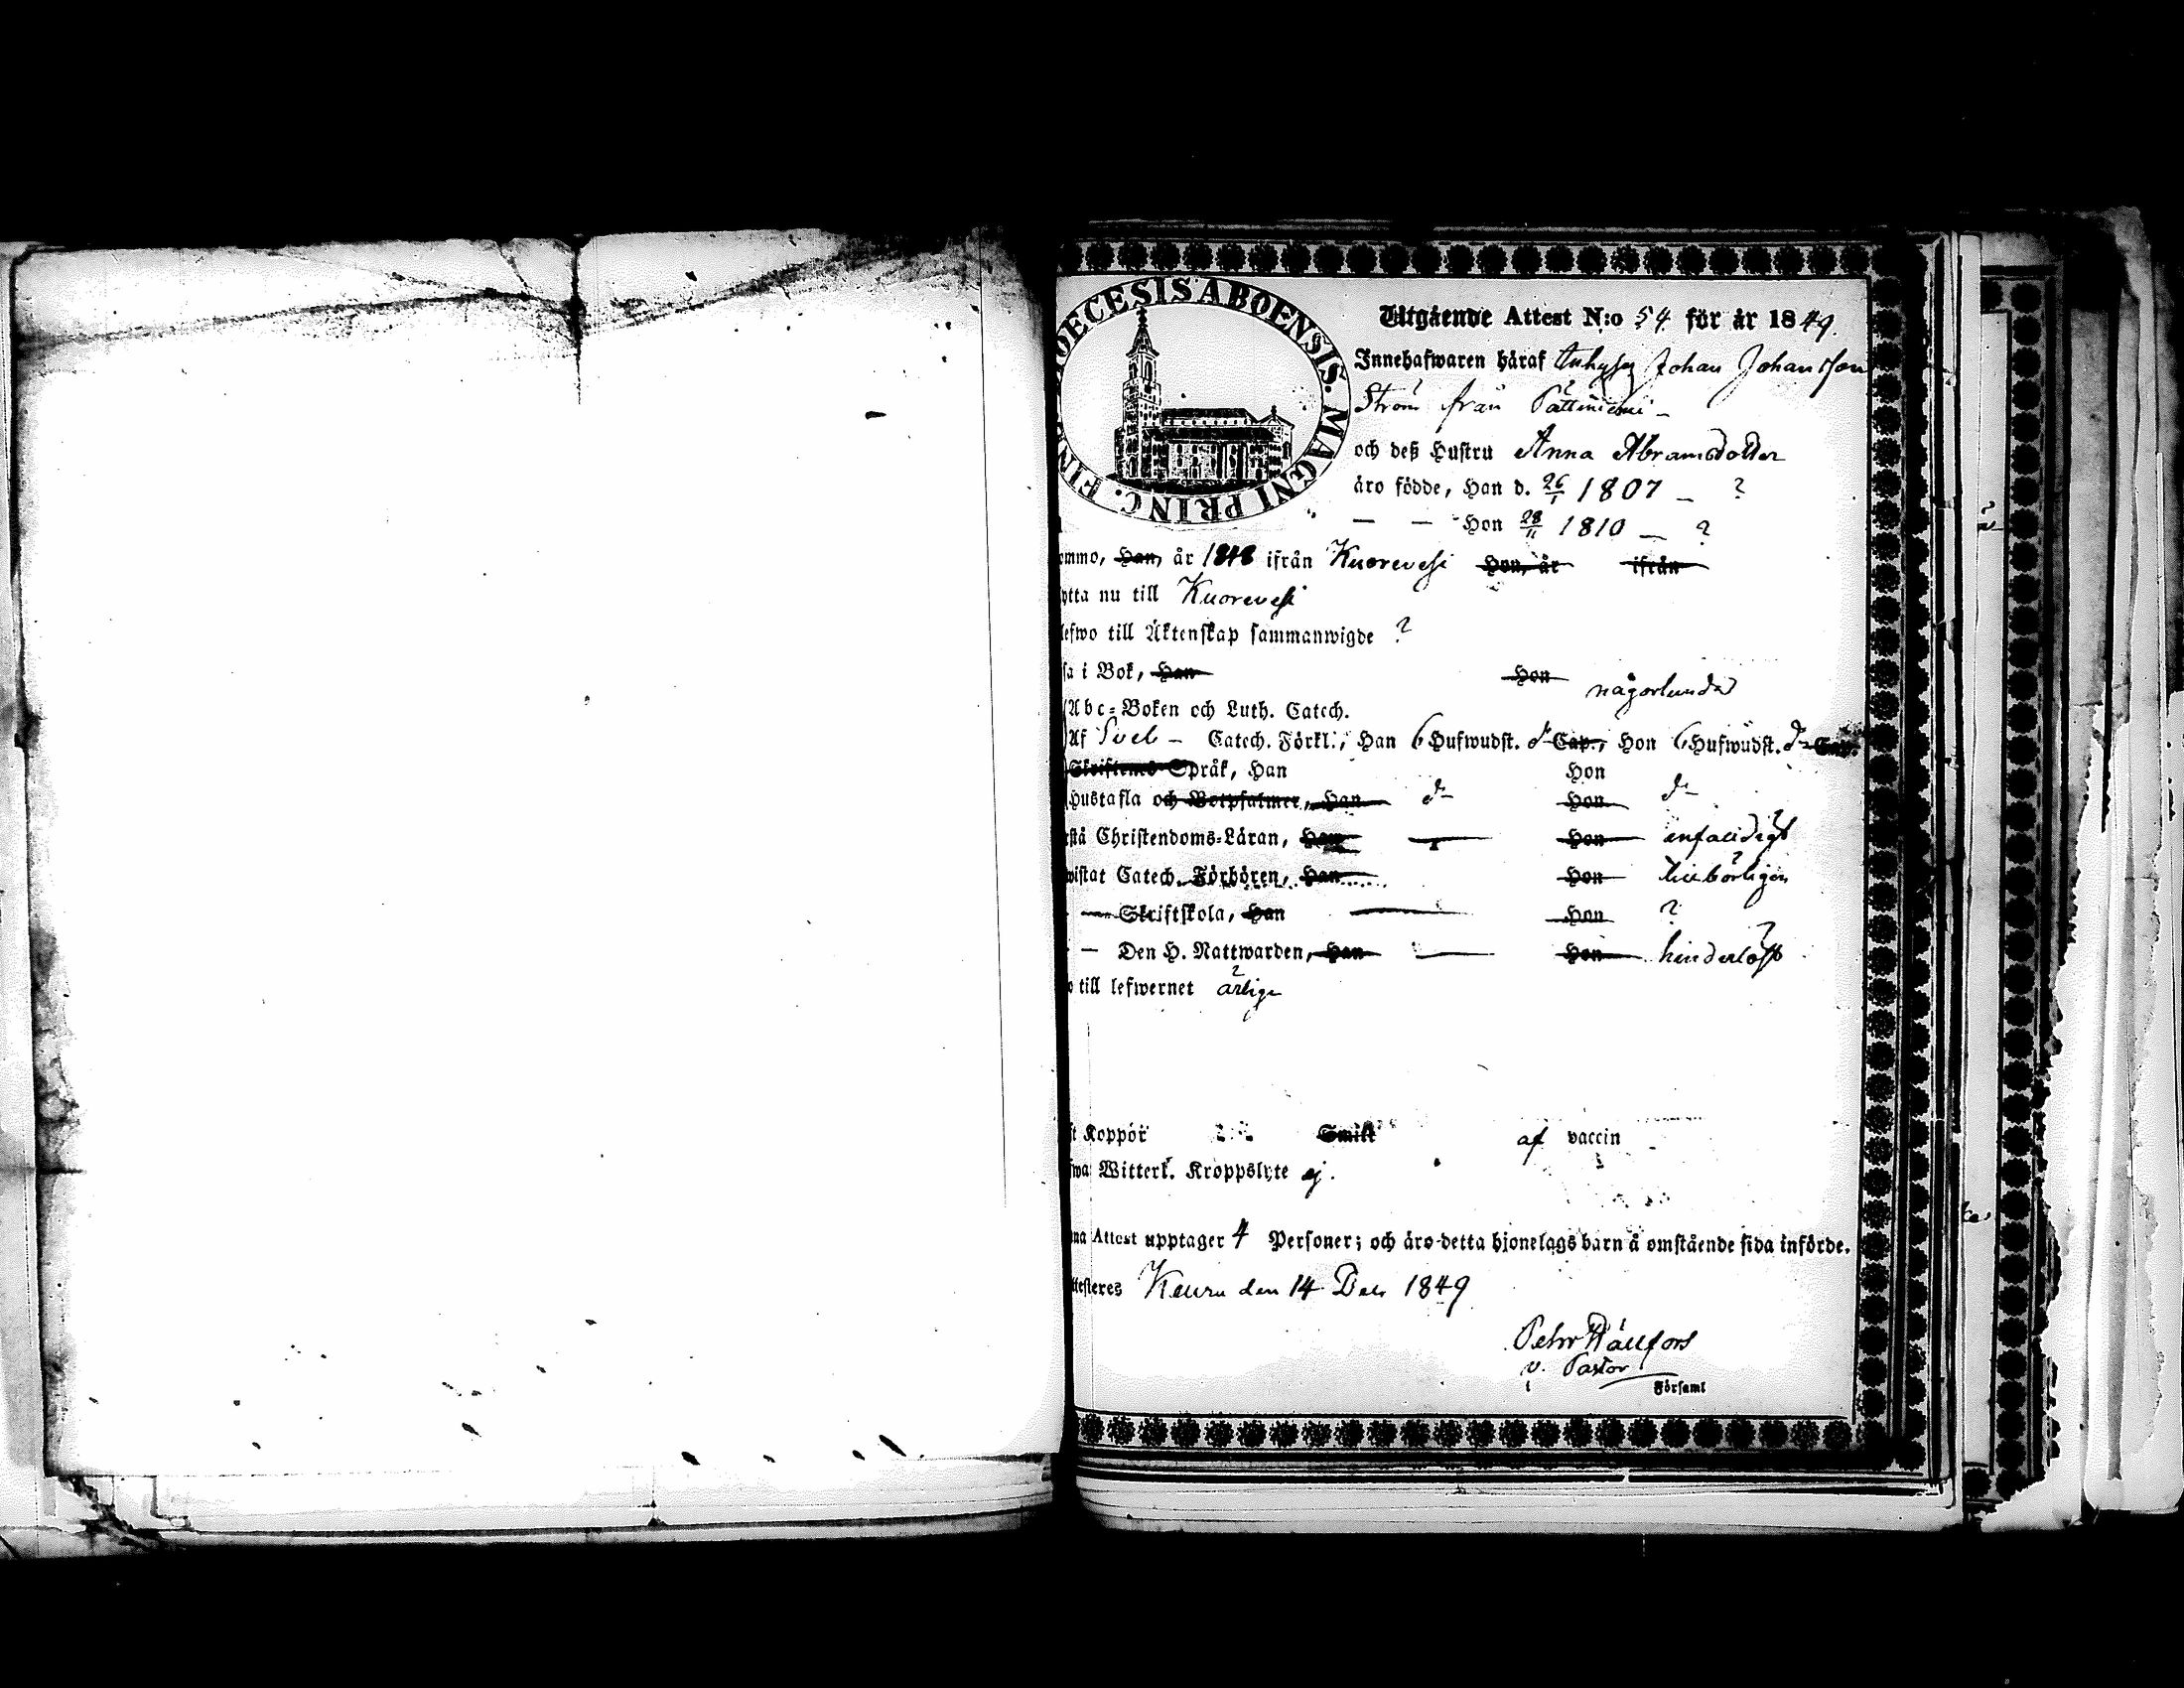 DIOECESIS ABOENSIS. MAGNI PRINC. FINL
Utgående Attest N:o 54 för år 1849.
Innehafwaren häraf Inhyses Johan Johansson
Ström från Pättiniemi –
och deß Hustru Anna Abramsdotter
äro födde, Han d. 26/1 1807 – ?
— — Hon 28/11 1810 – ?
ommo, Han, år 1848 ifrån Kuorevesi Hon, år ifrån
ytta nu till Kuorevesi
lefwo till Äktenskap sammanwigde ?
sa i Bok, Han Hon någorlunda
Abc-Boken och Luth. Catech.
Af Sveb – Catech. Förkl., Han 6 Hufwudst. do Cap., Hon 6 Hufwudst. do Cap.
Skriftens Språk, Han Hon
Hustafla och Botpsalmer, Han do Hon do
rstå Christendoms-Läran, Han — Hon enfaldigt
wistat Catech. Förhören, Han Hon tillbörligen
— Skriftskola, Han — Hon ?
— Den H. Nattwarden, Han — Hon hinderlöst
o till lefwernet ärlige
t Koppor Smitt af vaccin
fwa Witterl. Kroppslyte ej.
na Attest upptager 4 Personer; och äro detta hjonelags barn å omstående sida införde.
ttesteres Keuru den 14 Dec 1849
Pehr Hällfors
v. Pastor
i Församl